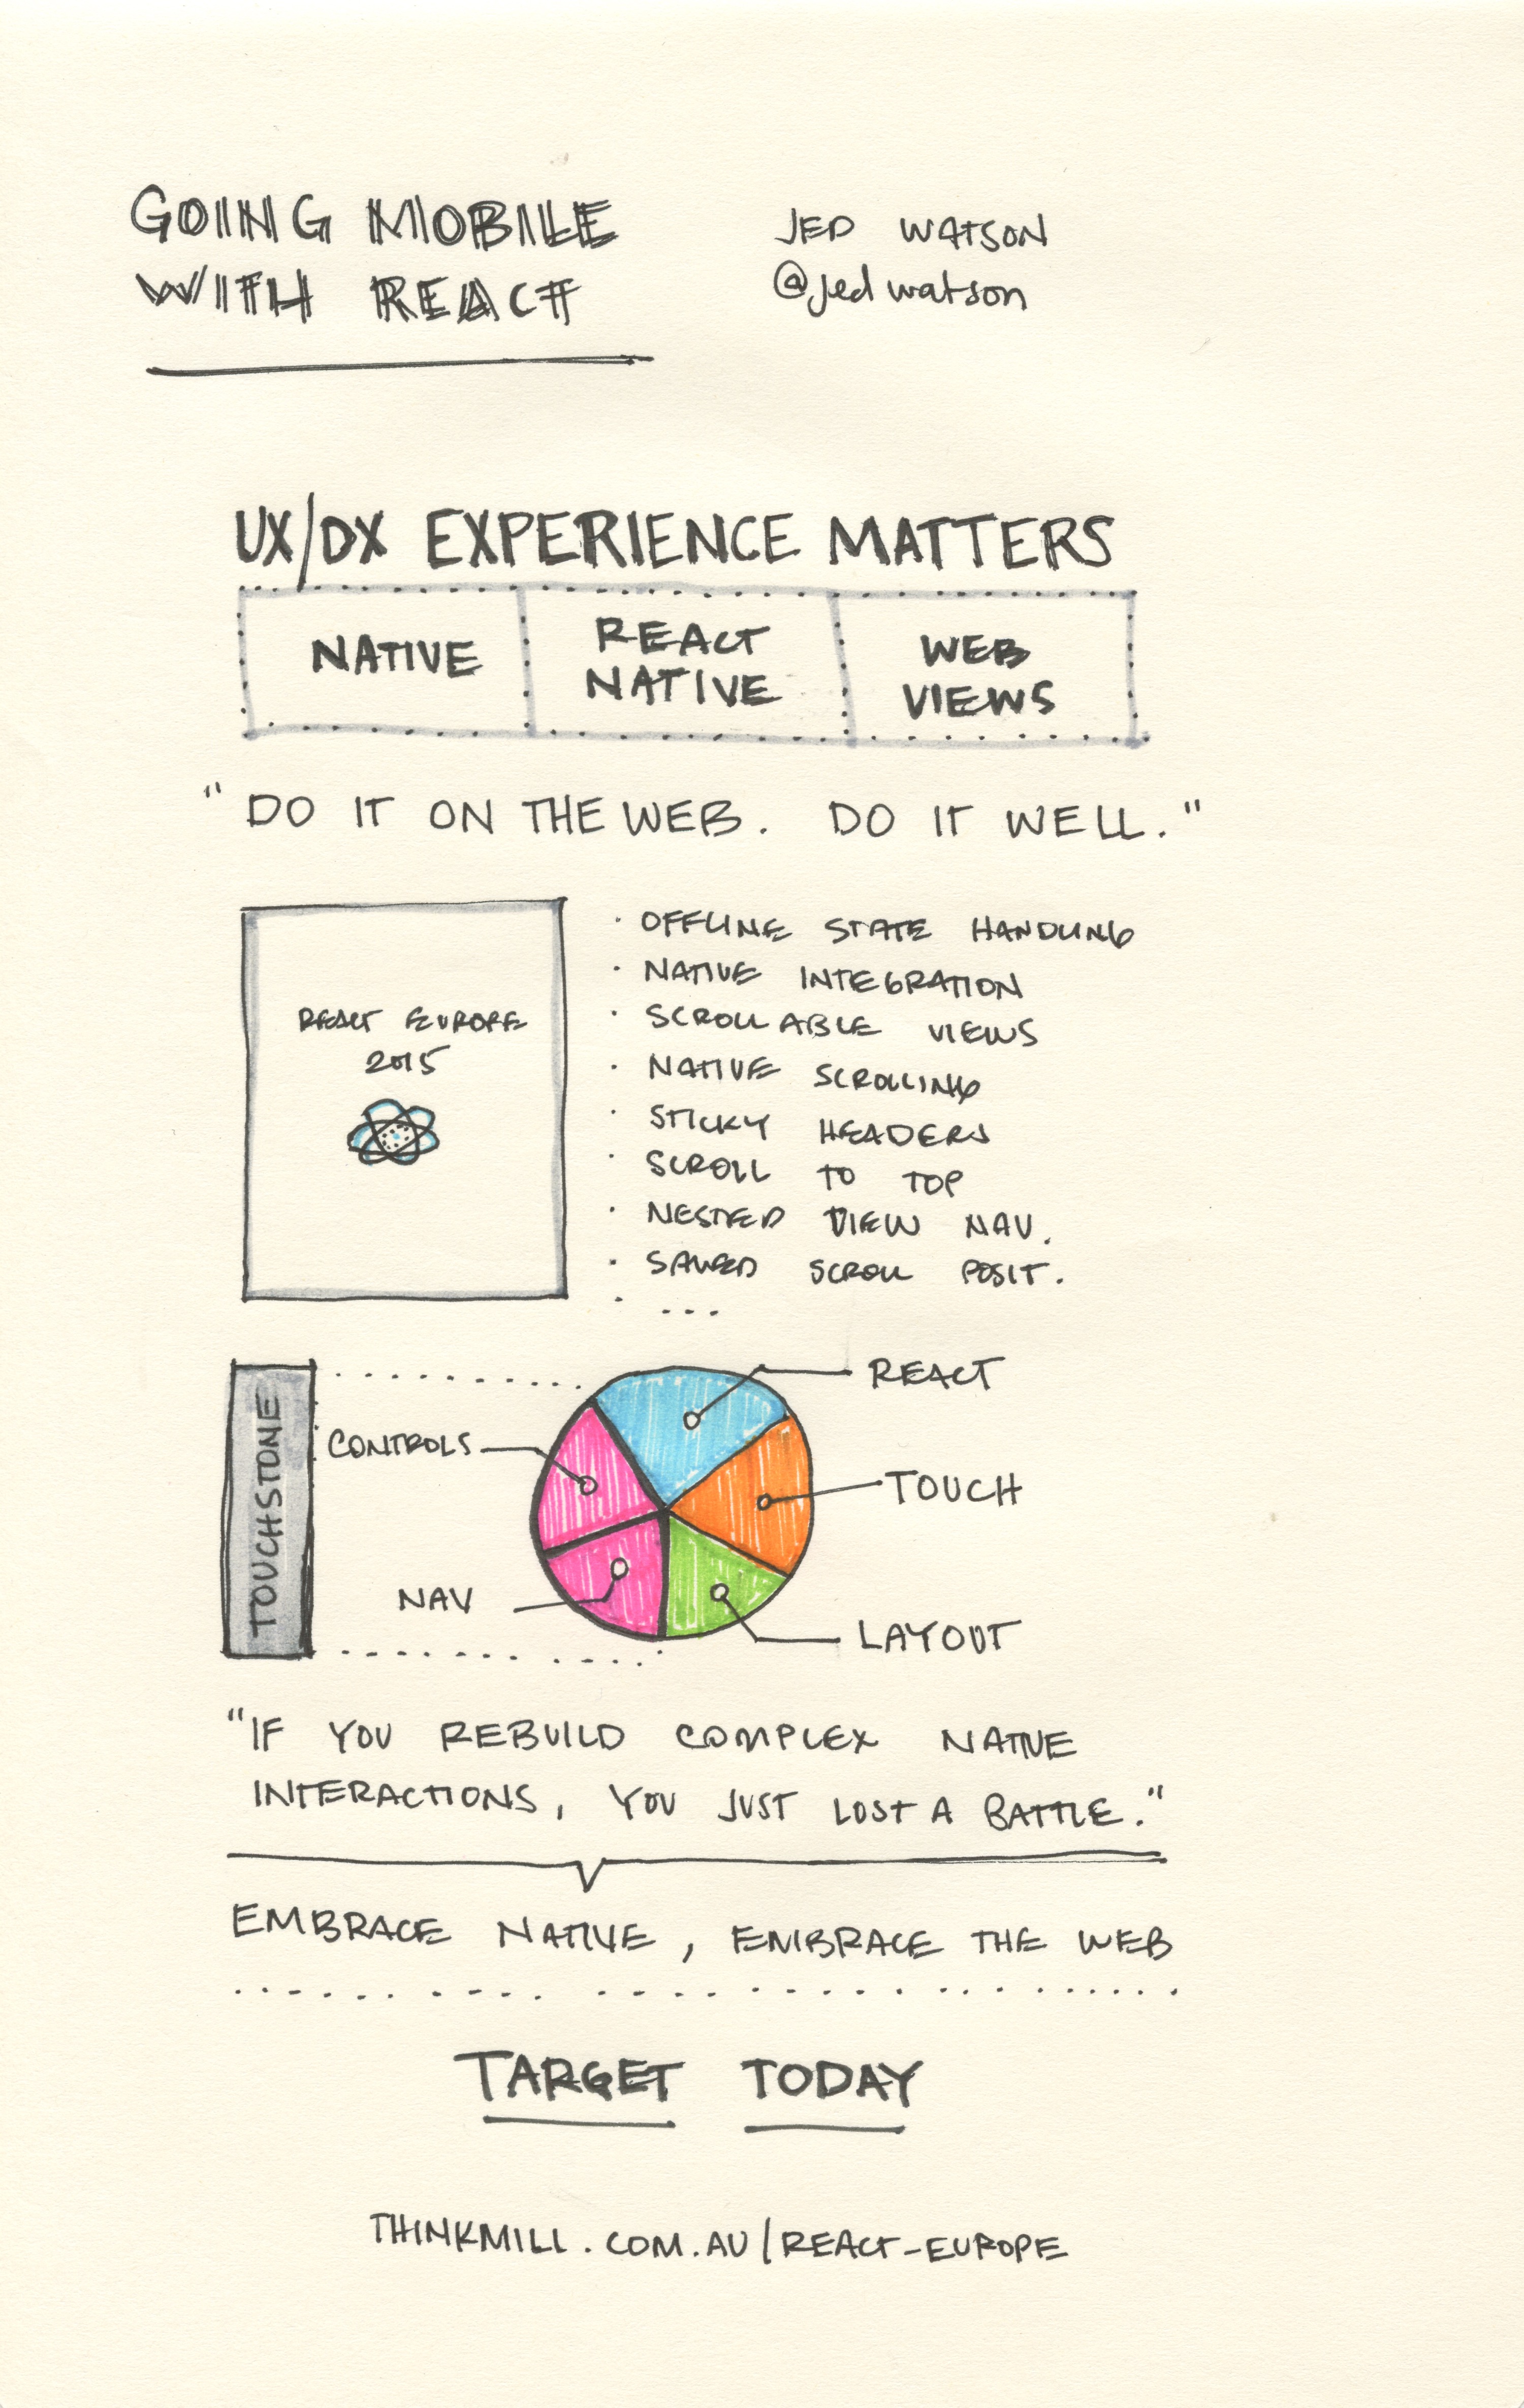 GOING MOBILE
WITH REACT
JED WATSON
@jedwatson
UX/DX EXPERIENCE MATTERS
NATIVE
REACT
NATIVE
WEB
VIEWS
"DO IT ON THE WEB. DO IT WELL."
REACT EUROPE
2015
· OFFLINE STATE HANDLING
· NATIVE INTEGRATION
· SCROLLABLE VIEWS
· NATIVE SCROLLING
· STICKY HEADERS
· SCROLL TO TOP
· NESTED VIEW NAV.
· SAVED SCROLL POSIT.
· ...
TOUCHSTONE
REACT
CONTROLS
TOUCH
NAV
LAYOUT
"IF YOU REBUILD COMPLEX NATIVE
INTERACTIONS, YOU JUST LOST A BATTLE."
EMBRACE NATIVE, EMBRACE THE WEB
TARGET TODAY
THINKMILL.COM.AU/REACT-EUROPE